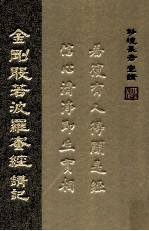 妙境長老宣講
若復有人得聞是經
信心清淨即生實相
金剛般若波羅蜜經講記